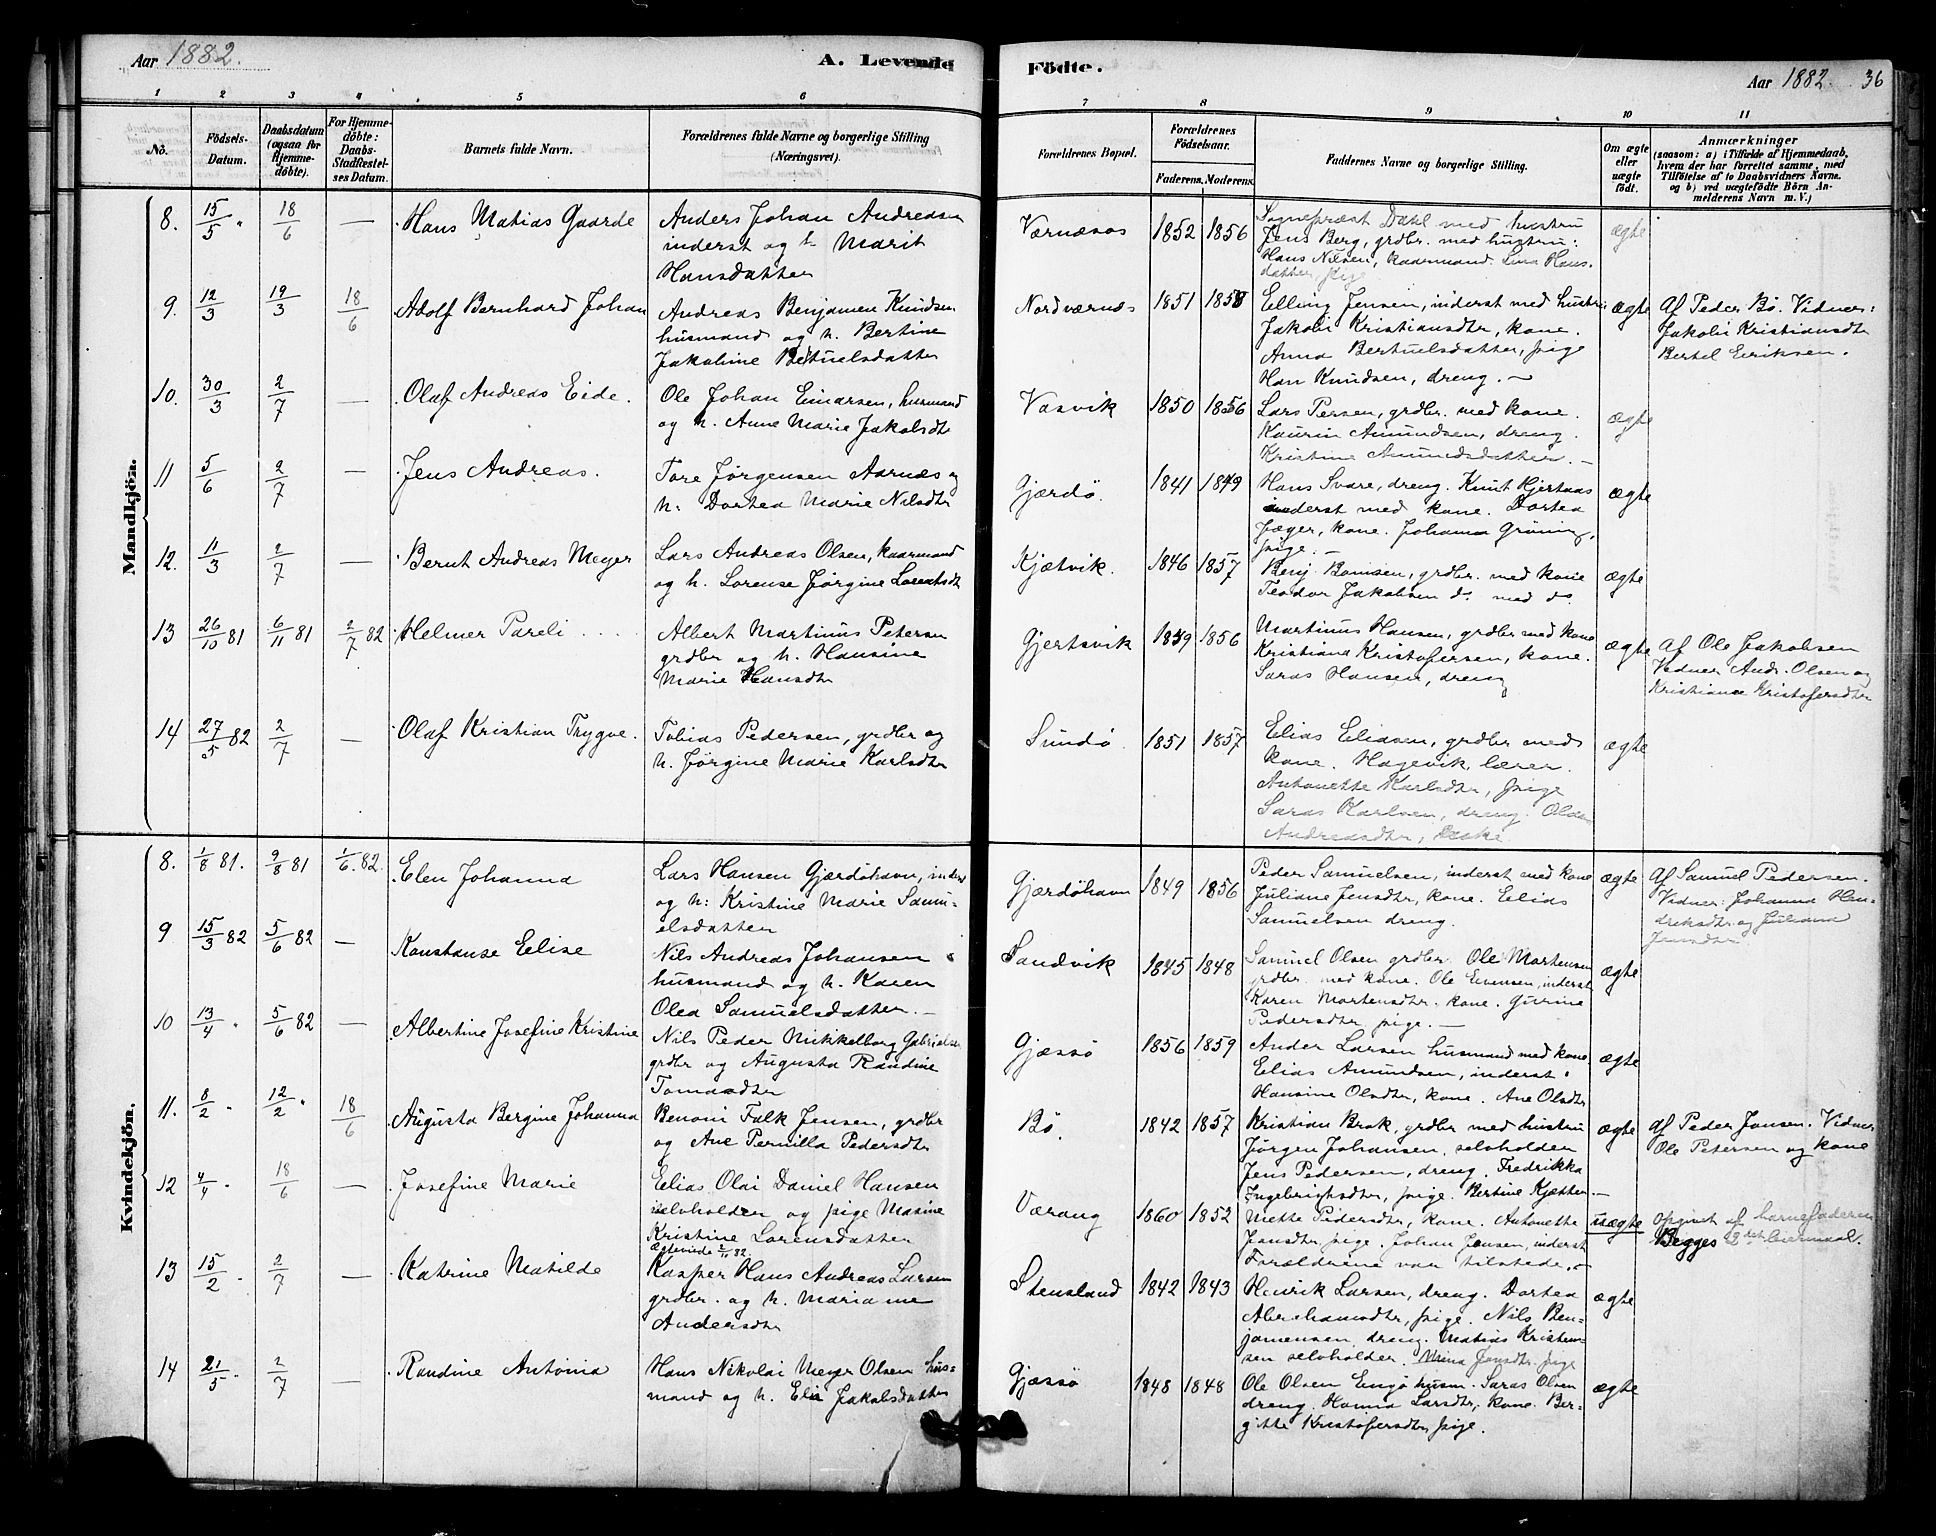 Aar 1882.
A. Levende
Födte.
Aar 1882. 36
1 2 3 4 5 6
7 8 9 10 11
No.
Födsels-Datum.
Daabsdatum (ogsaa for Hjemme-döbte).
For Hjemme-döbte: Daabs-Stadfæstelses Datum.
Barnets fulde Navn.
Forældrenes fulde Navne og borgerlige Stilling (Næringsvei).
Forældrenes Bopæl.
Forældrenes Födselsaar.
Faderens. Moderens.
Faddernes Navne og borgerlige Stilling.
Om ægte eller uægte födt.
Anmærkninger
(saasom: a) i Tilfælde af Hjemmedaab,
hvem der har forrettet samme, med
Tilföielse af to Daabsvidners Navne.
og b) ved uægtefödte Börn An-
melderens Navn m. V.)
Mandkjön.
8. 15/5 " 18/6 — Hans Matias Gaarde
Anders Johan Andreasen
inderst og h. Marit
Hansdatter
Værnæsos 1852 1856
Sognepræst Dahl med hustru
Jens Berg, grdbr. med hustru:
Hans Nilsen, kaarmand. Lina Hans.
datter, pige
ægte
9. 12/3 19/3 18/6 Adolf Bernhard Johan
Andreas Benjamen Knudsen
husmand og h. Bertine
Jakobine Betuelsdatter
Nordværnes 1851 1858
Elling Jensen, inderst med hustru
Jakobi Kristiansdtr, kone.
Anna Bertuelsdatter, pige
Han Knudsen, dreng. —
ægte
Af Peder Bø. Vidner:
Jakobi Kristiansdtr
Bertel Eeriksen.
10. 30/3 2/7 — Olaf Andreas Eide.
Ole Johan Einarsen, husmand
og h. Anne Marie Jakobsdtr
Vasvik 1850 1856
Lars Persen, grdbr. med kone.
Kaurin Amundsen, dreng.
Kristine Amundsdatter. —
ægte
11 5/6 2/7 — Jens Andreas.
Tore Jørgensen Aarnæs og
h: Dortea Marie Nilsdtr
Gjærdø. 1841 1849
Hans Svare, dreng. Knut Hjertaas
inderst med kone. Dortea
Jæger, kone. Johanna Grøning,
pige. —
ægte
12. 11/3 2/7 — Bernt Andreas Meyer
Lars Andreas Olsen, kaarmand
og h. Lorense Jørgine Lorentsdtr
Kjætvik. 1846 1857
Benj. Bomsen, grdbr. med kone
Teodor Jakobsen do. med do.
ægte
13 26/10 81 6/11 81 2/7 82 Helmer Pareli . . . .
Albert Martinus Petersen
grdbr og h. Hansine
Marie Hansdtr
Gjertsvik 1859 1856
Martinus Hansen, grdbr med kone
Kristiane Kristofersen, kone.
Saras Hansen, dreng
ægte
Af Ole Jakobsen
Vidner Andr. Olsen og
Kristiane Kristofersdtr
14 27/5 82 2/7 — Olaf Kristian Trygve.
Tobias Pedersen, grdbr og
h. Jørgine Marie Karlsdtr
Sundø. 1851 1857
Elias Eliasen, grdbr med
kone. Hagevik, lærer.
Antonette Karlsdtr, pige
Saras Karlsen, dreng. Olea
Andreasdtr,
ægte
Kvindekjön.
8. 1/8 81. 9/8 81 1/6. 82. Elen Johanna
Lars Hansen Gjærdøhavn, inderst
og h: Kristine Marie Samu-
elsdatter
Gjærdøhavn 1849 1856
Peder Samuelsen, inderst med kone
Juliane Jensdtr, kone. Elias
Samuelsen dreng.
ægte
Af Samuel Pedersen.
Vidner: Johanna Hen-
driksdtr og Juliana
Jensdtr
9 15/3 82 5/6 82 — Konstanse Eelise
Nils Andreas Johansen
husmand og h. Karen
Olea Samuelsdatter. —
Sandvik 1845 1848
Samuel Olsen grdbr. Ole Mortensen
grdbr. med kone. Ole Evensen, inderst
Karen Mortensdtr. kone. Gurine
Pedersdtr pige. —
ægte
10 13/4 " 5/6 82 — Albertine Josefine Kristine
Nils Peder Mikkelborg Gabrielsen
grdbr og Augusta Randine
Tomasdtr
Gjæssø 1856 1859
Ander Larsen husmand med kone
Eelias Amundsen, inderst.
Hansine Olsdtr, kone. Ane Olsdtr
ægte
11. 8/2 " 12/2 " 18/6 Augusta Bergine Johanna
Benoni Falk Jensen, grdbr
og Ane Pernilla Pedersdtr
Bø. 1842 1857
Kristian Brak, grdbr med hustru
Jørgen Johansen, selvholden
Jens Pedersen, dreng. Fredrikka
Ingebrigtsdtr, pige. Bertine Kjætten. —
ægte
Af Peder Jonsen. Vidner
Ole Petersen og kone
12 4/4 " 18/6 — Josefine Marie
Eelias Olai Daniel Hansen
selvholden og pige Masine
Kristine Lorensdatter
Værang 1860 1852
Mette Pedersdtr, kone. Antonette
Jonsdtr pige. Johan Jensen, inderst
Forældrene var tilstede. —
uægte
opgivet af barnefaderen
Begges 2det leiermaal.
13 15/2 " 2/7 — Katrine Matilde
Kasper Hans Andreas Larsen
grdbr. og h. Maria
Andersdtr
Stensland 1842 1843
Henrik Larsen, dreng. Dortea
Abrahamsdtr, pige. Nils Ben-
jamensen, dreng. Matias Kristen-
sen selvholder. Mina Jonsdtr. pige
ægte
14 21/5 " 2/7 — Randine Antonia
Hans Nikolai Meyer Olsen hus-
mand og h. Elia Jakobsdatter
Gjæssø 1848 1848
Ole Olsen Engø husm. Saras Olsen
dreng. Hanna Larsdtr, kone. Ber-
gitte Kristofersdtr, pige.
ægte